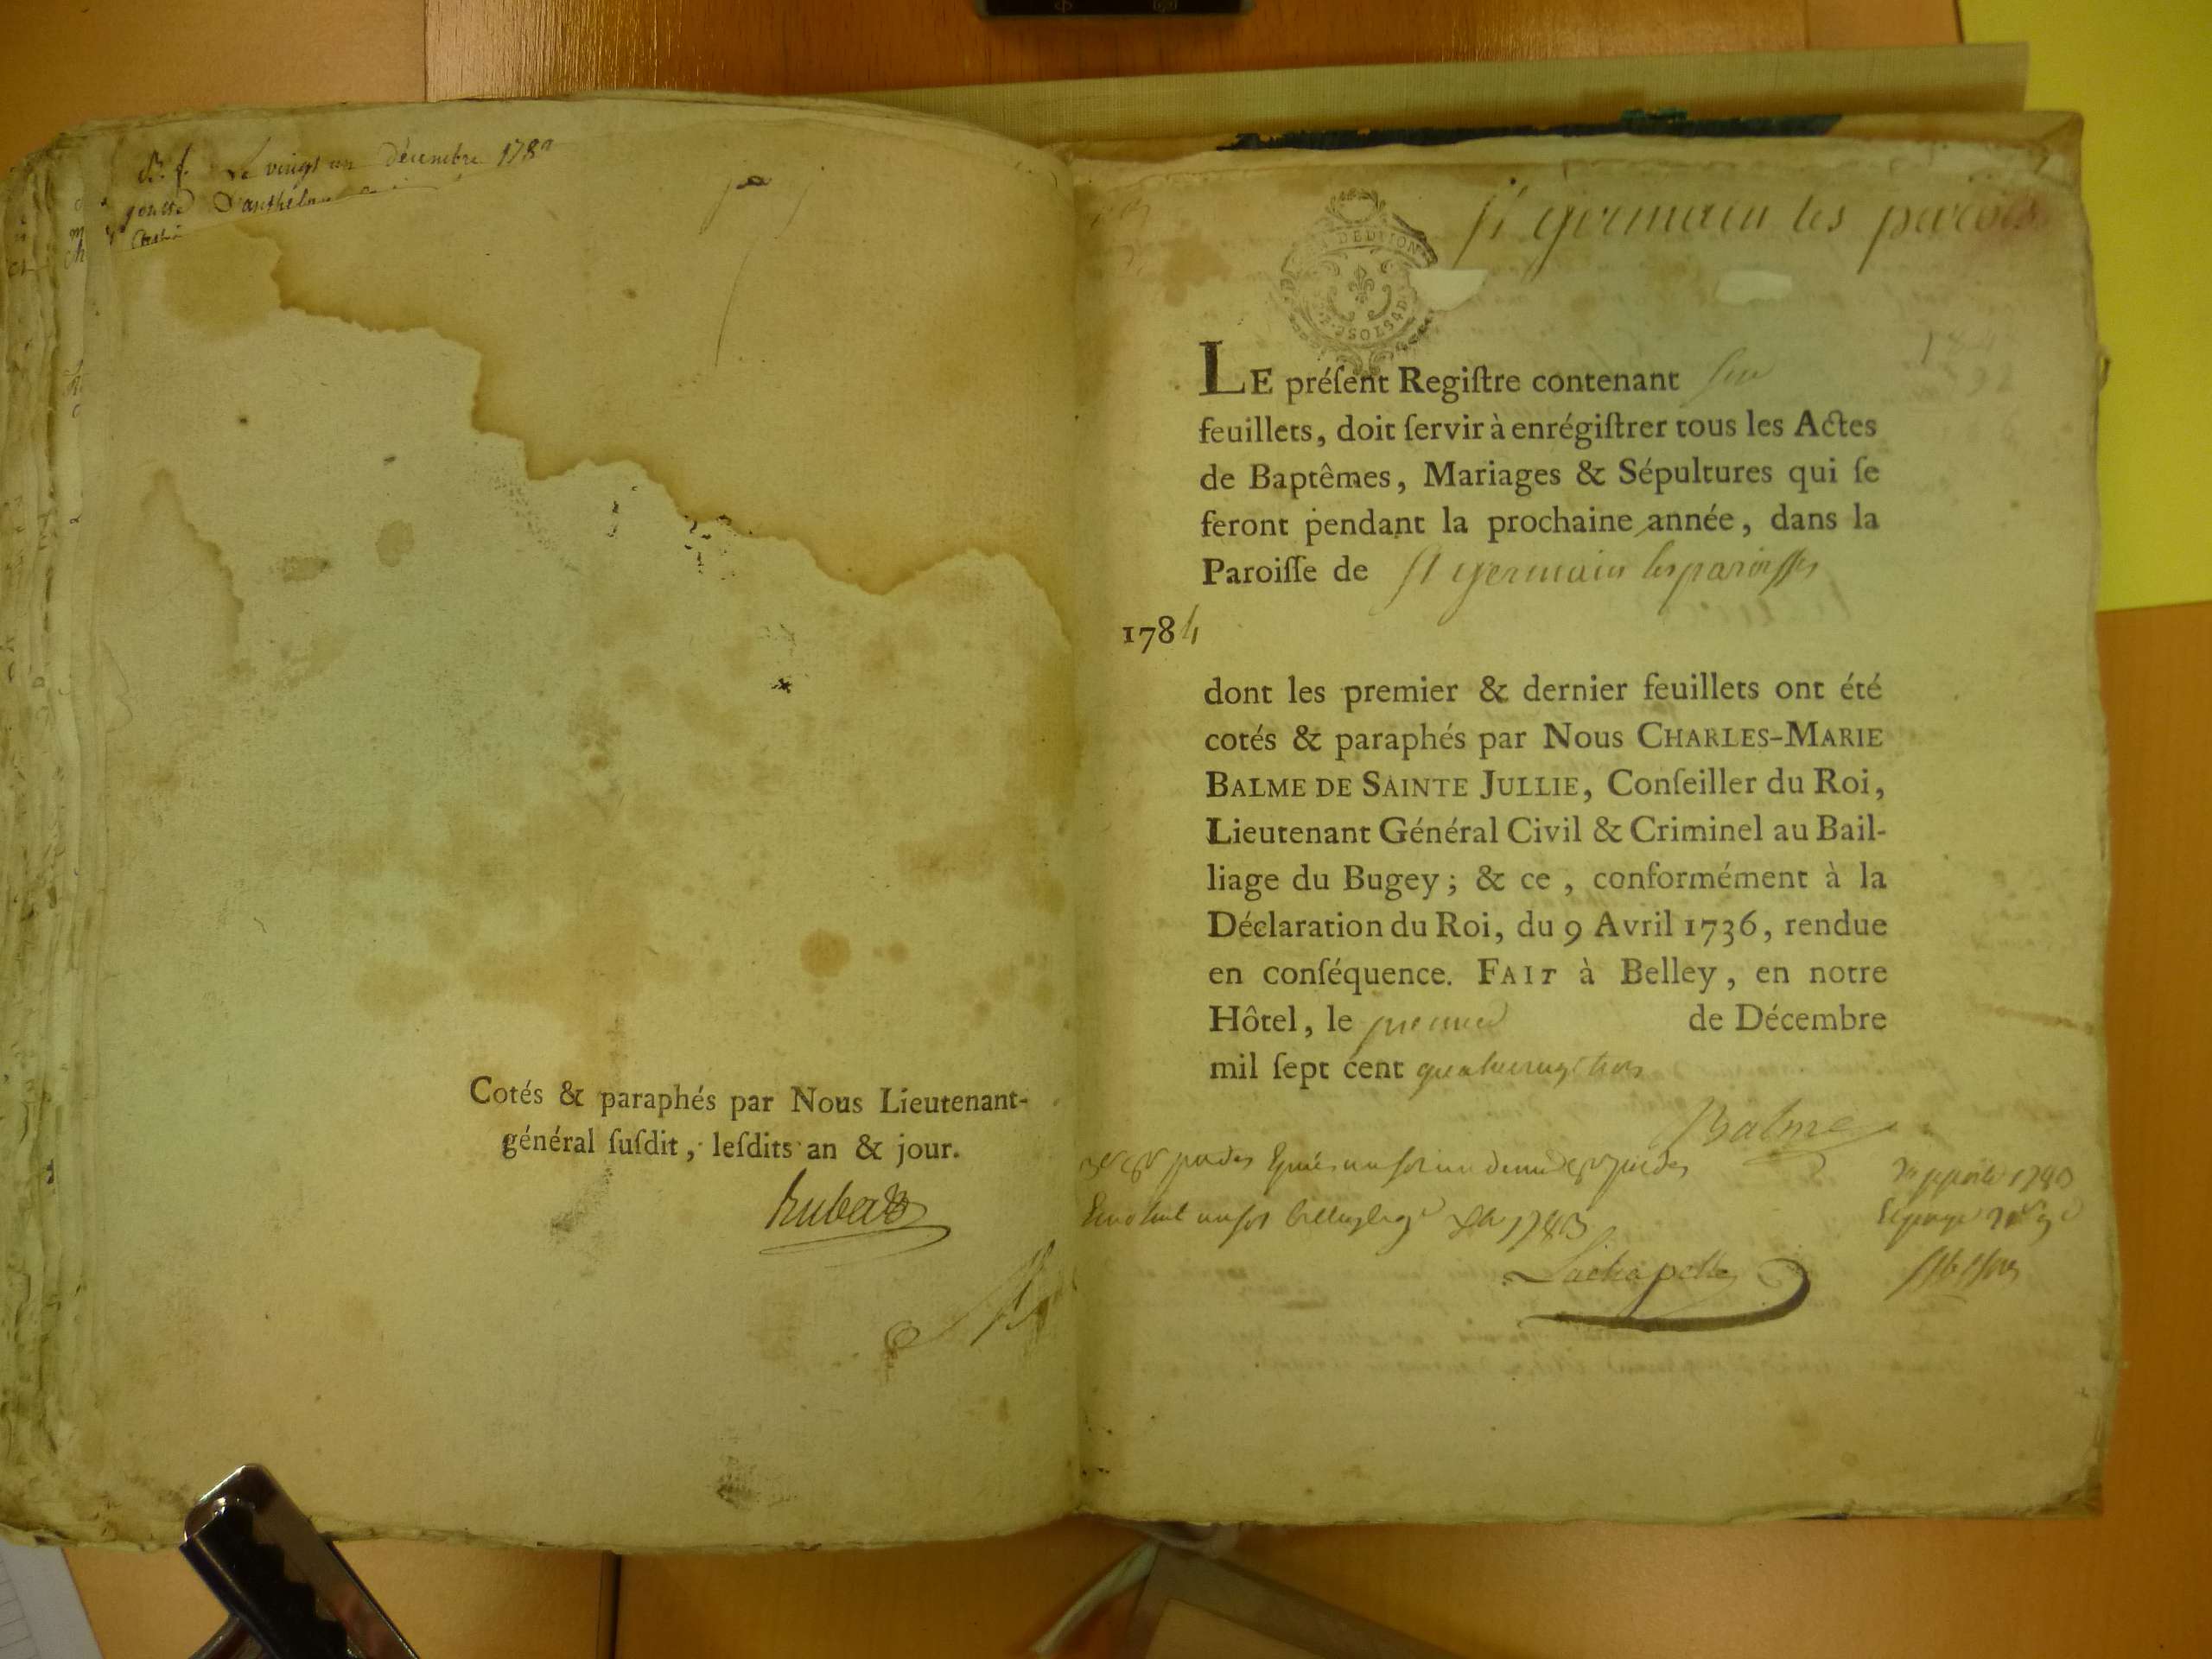 B. f. Le vingt un Décembre 178
Cotés & paraphés par Nous Lieutenant-
général ſuſdit, leſdits an & jour.
st germain les parois
LE préſent Regiſtre contenant
feuillets, doit ſervir à enrégiſtrer tous les Actes
de Baptêmes, Mariages & Sépultures qui ſe
feront pendant la prochaine année, dans la
Paroiſſe de st germain les paroisses
1784
dont les premier & dernier feuillets ont été
cotés & paraphés par Nous CHARLES-MARIE
BALME DE SAINTE JULLIE, Conſeiller du Roi,
Lieutenant Général Civil & Criminel au Bail-
liage du Bugey; & ce, conformément à la
Déclaration du Roi, du 9 Avril 1736, rendue
en conſéquence. FAIT à Belley, en notre
Hôtel, le premier de Décembre
mil ſept cent quatrevingt trois
Balme
1783
Lachapelle